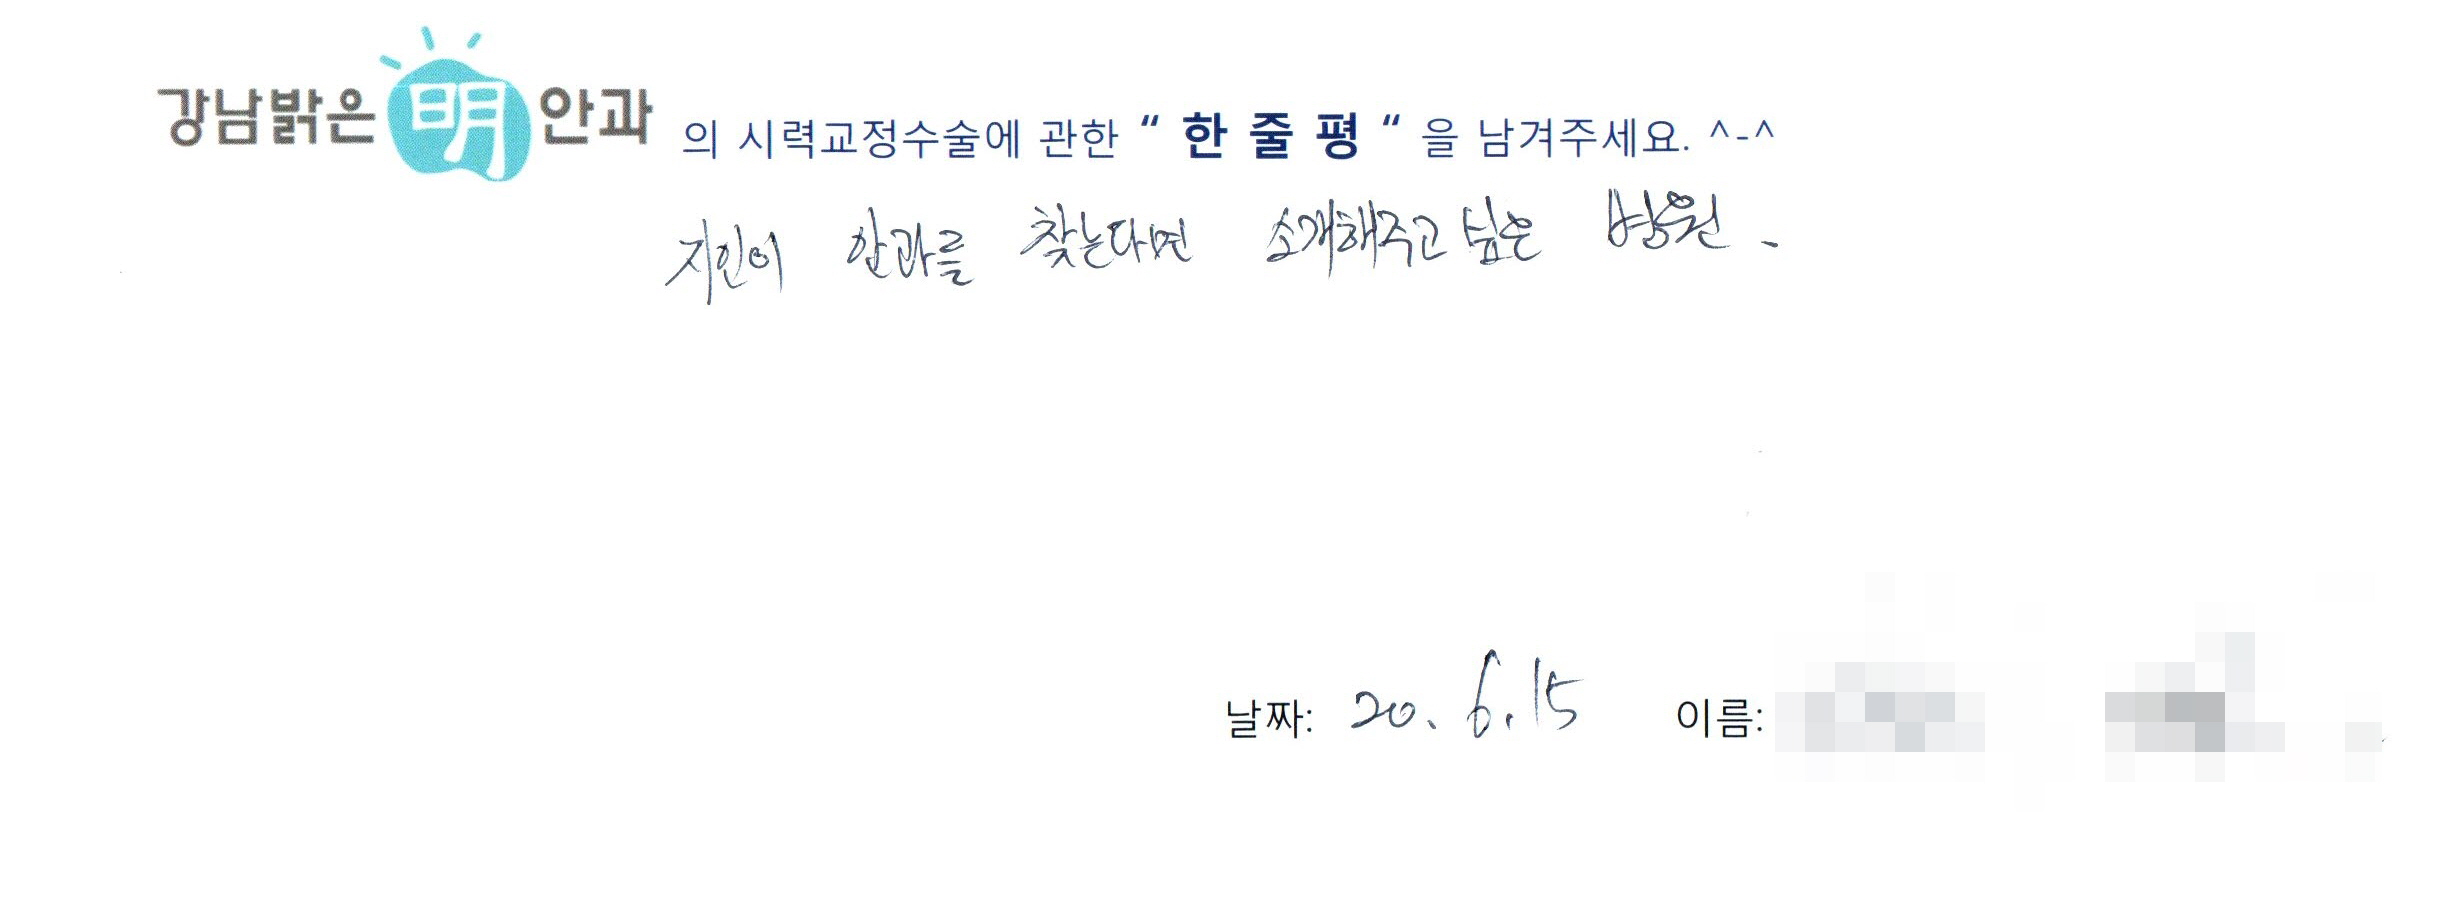 강남밝은明안과 의 시력교정수술에 관한 “ 한 줄 평 “ 을 남겨주세요. ^-^
지인이 안과를 찾는다면 소개해주고 싶은 병원.
날짜: 20. 6. 15 이름: